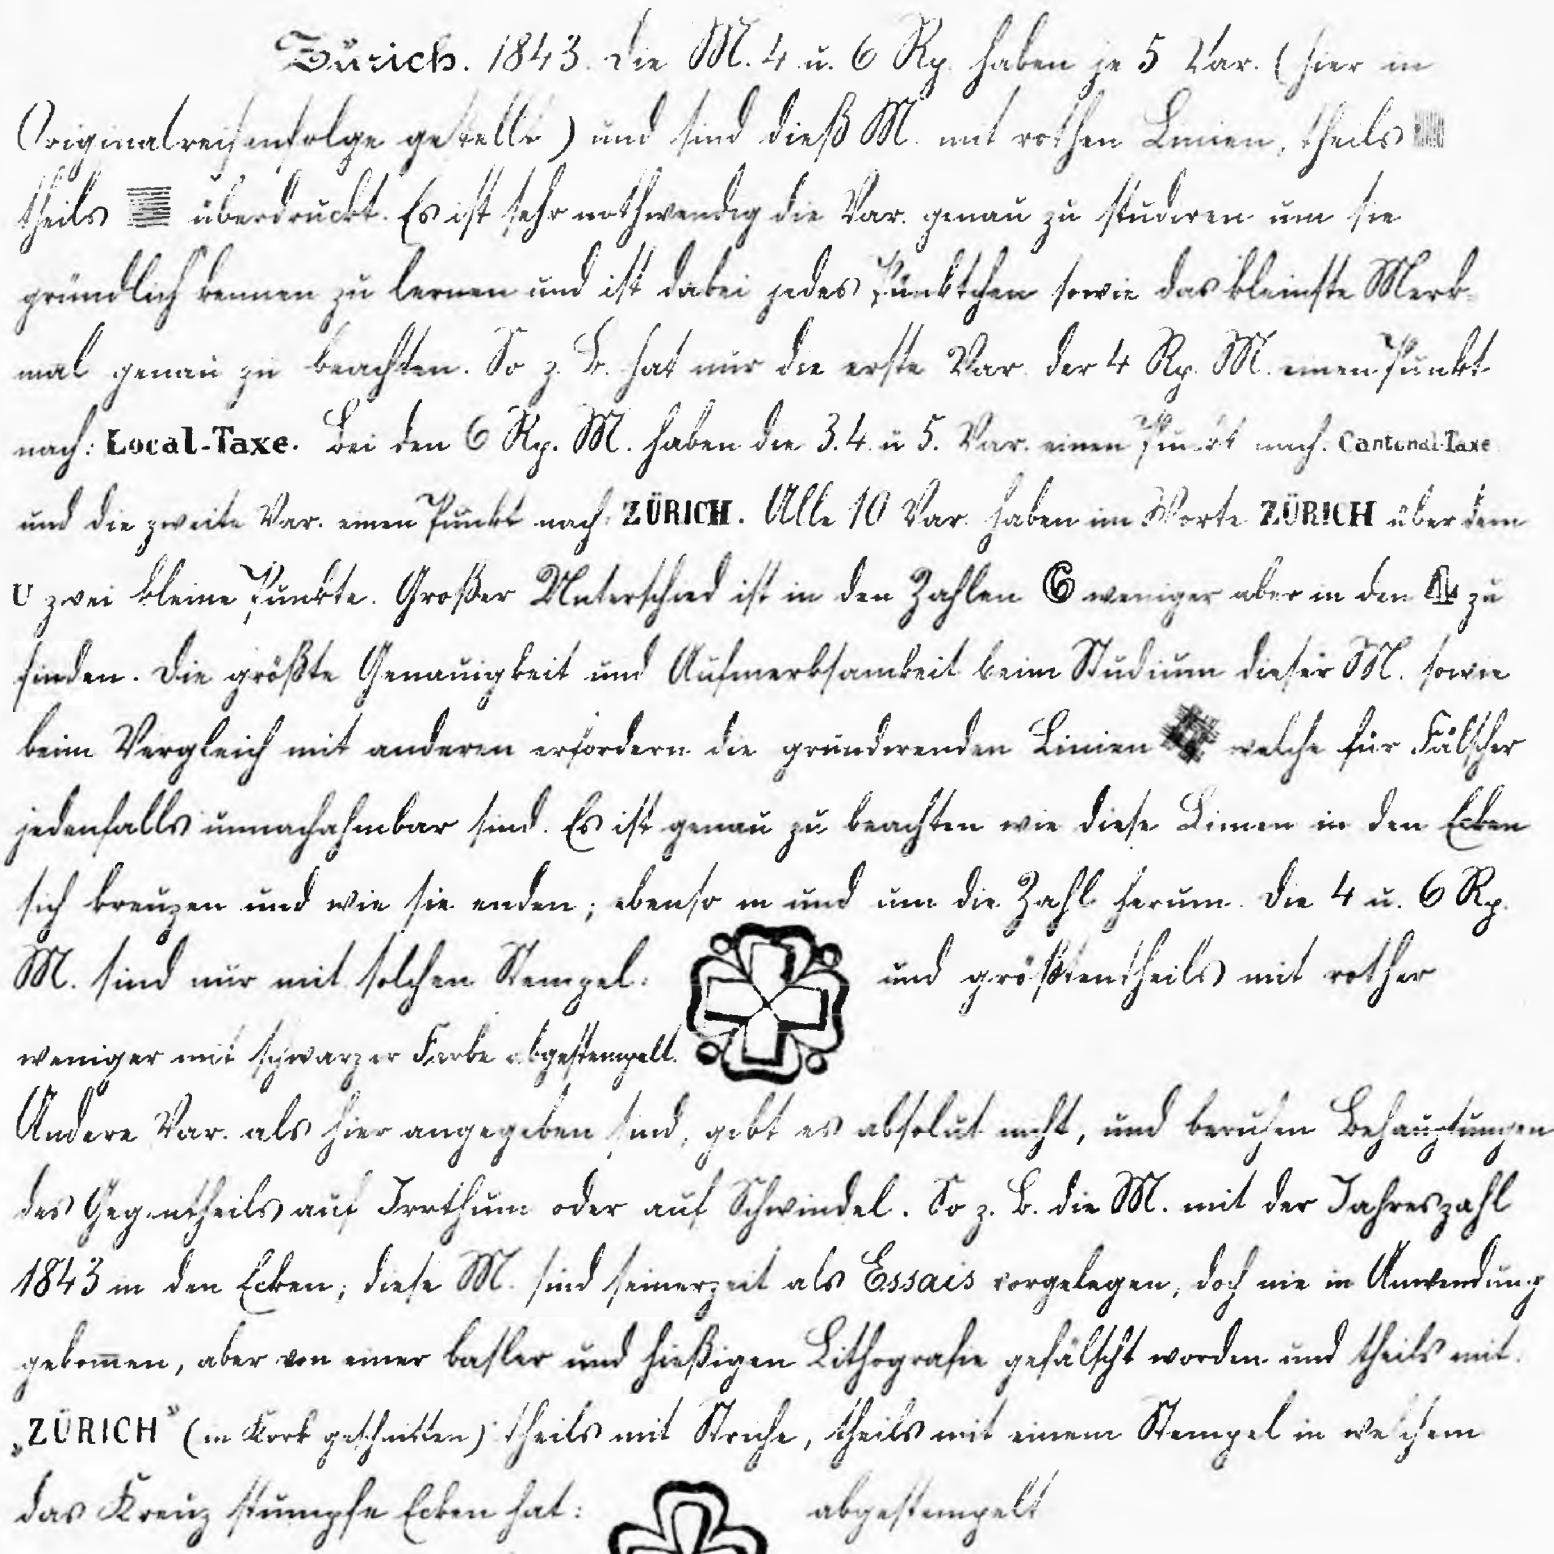 Zürich. 1843. Die M. 4 u. 6 Rp. haben je 5 Var. (hier in
Originalreihenfolge gestellt) und sind dieß M. mit rothen Linien, theils
theils überdruckt. Es ist sehr nothwendig die Var. genau zu studiren um sie
gründlich kennen zu lernen und ist dabei jedes Pünktchen sowie das kleinste Merk-
mal genau zu beachten. So z. B. hat nur die erste Var. der 4 Rp. M. einen Punkt
nach: Local-Taxe. Bei den 6 Rp. M. haben die 3. 4. u 5. Var. einen Punkt nach. Cantonal-Taxe
und die zweite Var. einen Punkt nach: ZÜRICH. Alle 10 Var. haben im Worte ZÜRICH über dem
U zwei kleine Punkte. Großer Unterschied ist in den Zahlen 6 weniger aber in den 4 zu
finden. Die größte Genauigkeit und Aufmerksamkeit beim Studium dieser M. sowie
beim Vergleich mit anderen erfordern die grundirenden Linien welche für Fälscher
jedenfalls unnachahmbar sind. Es ist genau zu beachten wie diese Linien in den Ecken
sich kreuzen und wie sie enden; ebenso in und um die Zahl herum. Die 4 u. 6 Rp.
M. sind nur mit solchen Stempel: und größtentheils mit rother
weniger mit schwarzer Farbe abgestempelt.
Andere Var. als hier angegeben sind, gibt es absolut nicht, und beruhen Behauptungen
des Gegentheils auf Irrthum oder auf Schwindel. So z. B. die M. mit der Jahreszahl
1843 in den Ecken; diese M. sind seinerzeit als Essais vorgelegen, doch nie in Anwendung
gekom̅en, aber von einer basler und hießigen Lithografie gefälscht worden und theils mit
„ZÜRICH" (in Kork geschnitten) theils mit Striche, theils mit einem Stempel in welchem
das Kreuz stumpfe Ecken hat: abgestempelt